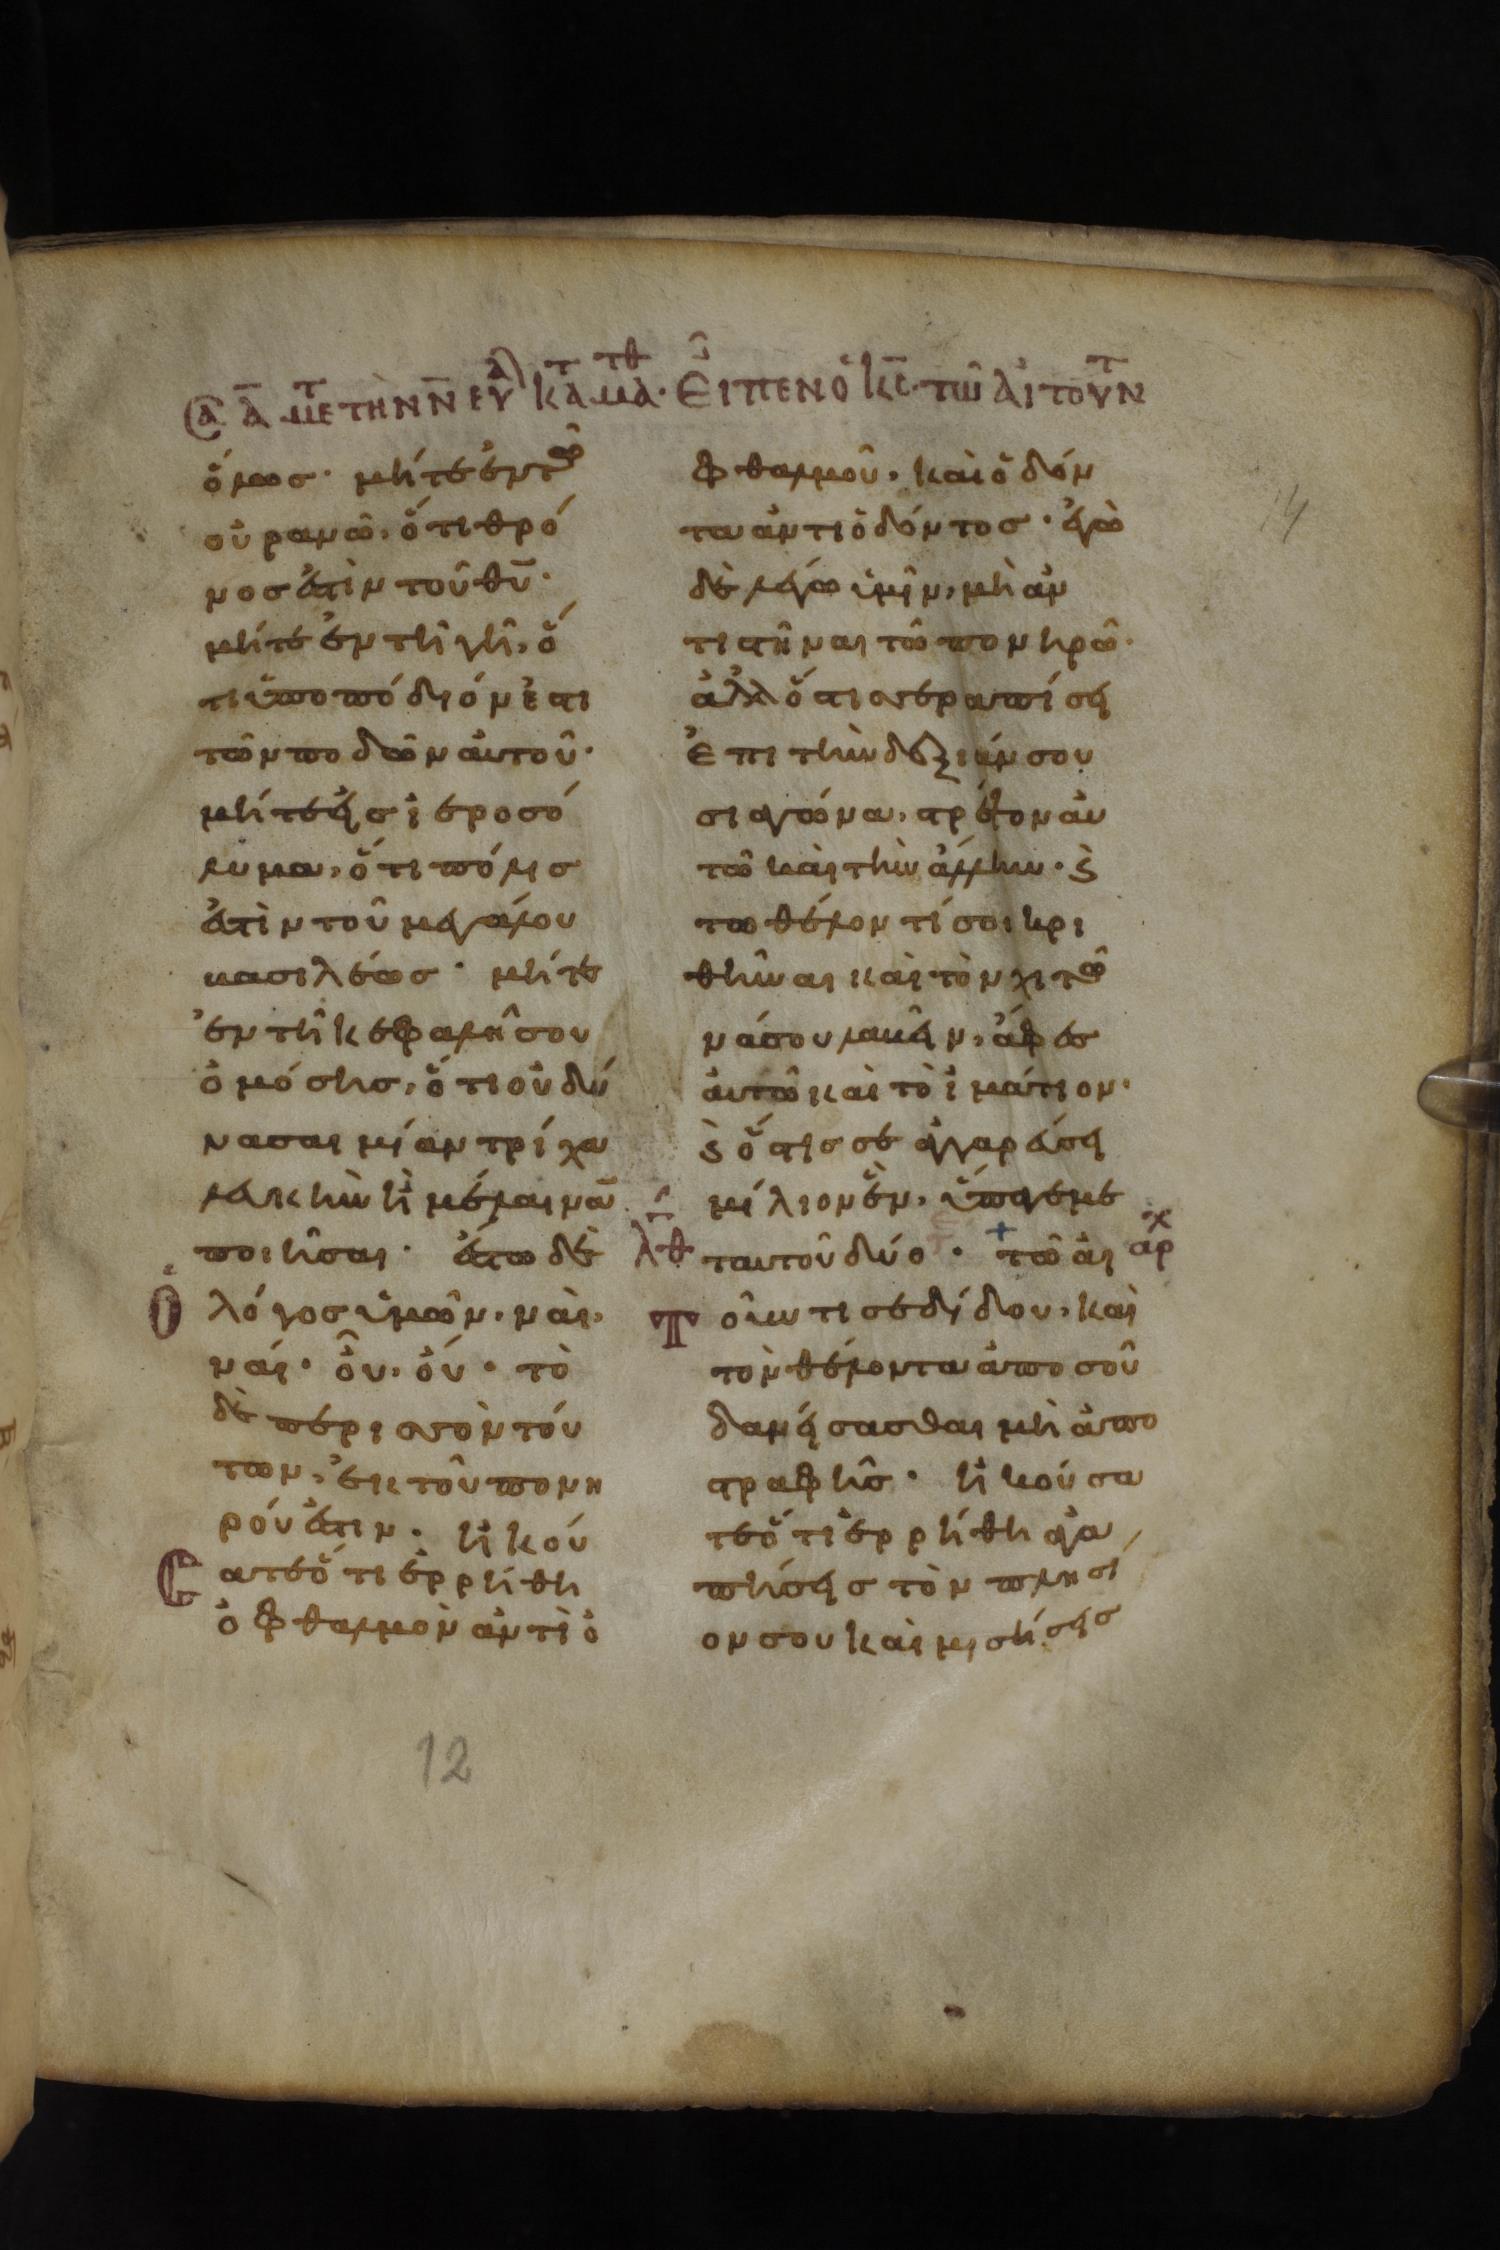 ὅλωσ· μήτε ἐν τῶ
οὐρανῶ, ὅτι θρό
νοσ ἐστὶν τοῦ θ̅υ̅·
μήτε ἐν τῆ γῆ, ὅ
τι ὑποπόδιόν ἐστι
τῶν ποδῶν αὐτοῦ·
μήτε εἰσ ἱεροσό
λυμα, ὅτι πόλισ
ἐστὶν τοῦ μεγάλου
βασιλέωσ· μήτε
ἐν τῆ κεφαλῆ σου
ὀμόσησ, ὅτι οὐ δύ
νασαι μίαν τρίχα
λευκὴν ἢ μέλαιναν
ποιῆσαι· ἔστω δὲ
Ὁ λόγοσ ὑμῶν, ναὶ,
ναί· οὒ, οὔ· τὸ
δὲ περισσὸν τού
των, ἐκ τοῦ πονη
ροῦ ἐστιν· ἠκού
σατε ὅτι ἐρρήθη
ὀφθαλμὸν ἀντὶ ὀ
φθαλμοῦ, καὶ ὀδόν
τα ἀντὶ ὀδόντοσ· ἐγὼ
δὲ λέγω ὑμῖν, μὴ ἀν
τιστῆναι τῶ πονηρῶ·
ἀλλ ὅστισ σε ραπίσει
ἐπι τὴν δεξιάν σου
σιαγόνα, στρέψον αὐ
τῶ καὶ τὴν ἄλλην· ϗ
τω θέλοντί σοι κρι
θῆναι καὶ τὸν χιτῶ
νά σου λαβεῖν, ἄφεσ
αὐτῶ καὶ τὸ ἱμάτιον·
ϗ ὅστισ σε ἀγγαρεύσει
μίλιον ἓν, ὕπαγε με
λθ τ αυτοῦ δύο · + τῶ αἰ ἀρχ
Τοῦντι σε δίδου, καὶ
τὸν θέλοντα ἀπο σοῦ
δανείσασθαι μὴ ἀπο
στραφῆσ· ἠκούσα
τε ὅτι ἐρρήθη ἀγα
πήσεισ τὸν πλησί
ον σου καὶ μισήσεισ
12
14